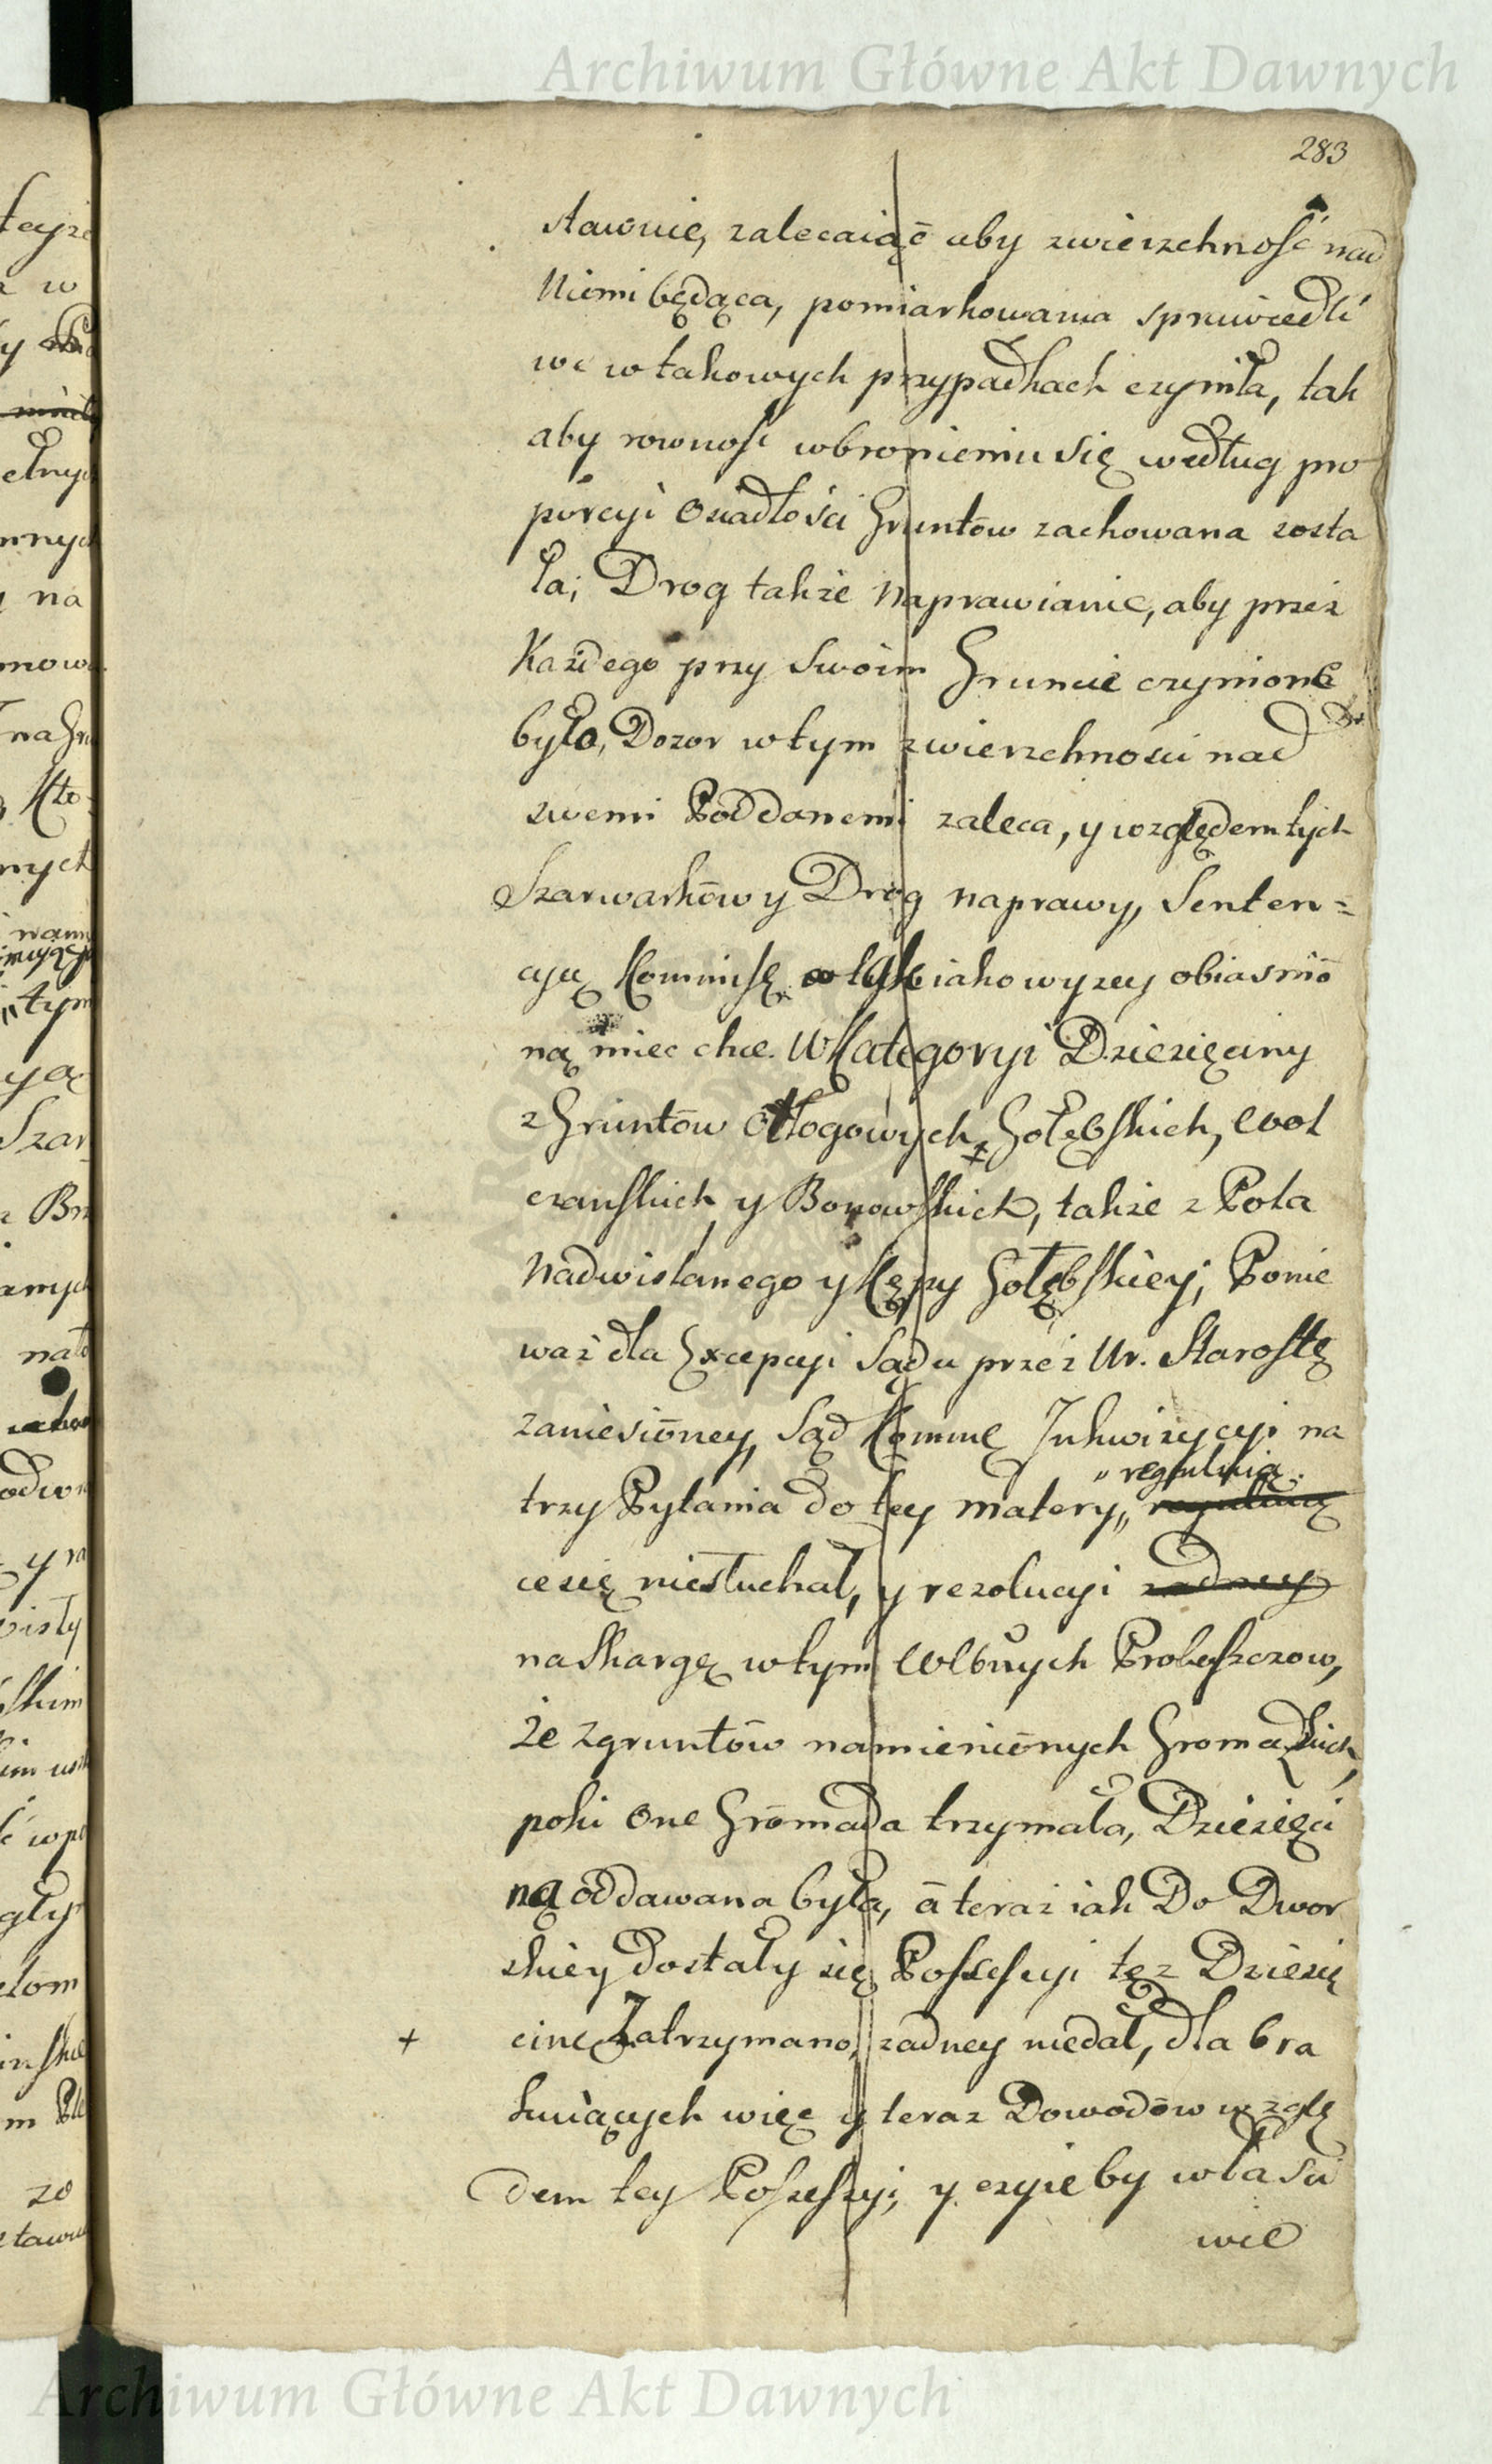 Archiwum Główne Akt Dawnych
283
stawnie, zalecaiąc aby zwierzchność nad
Niemi będąca, pomiarkowania sprawiedli
we w takowych przypadkach czyniła, tak
aby rowność w bronieniu się według pro
porcyi Osiadłości Gruntów zachowana zosta
ła; Drog także naprawianie, aby przez
Każdego przy Swoim Gruncie czynione
było, Dozor w tym zwierzchności nad
swemi Poddanemi zaleca, y względem tych
Szarwarków y Drog naprawy, Senten=
cyę Kommisę iako wyzey obiasnio
ną miec chce. W Kategoryi Dziesięciny
z Gruntów Odłogowych Gołębskich, Wol
czanskich y Bonowskich, także z Pola
Nadwislanego y Kępy Gołębskiey, Ponie
waż dla Excepcyi Sądu przez Ur. Starostę
zaniesióney, Sąd Kommę Inkwizycyi na
„ reguluią
trzy Pytania do tey matery„ reguluią
ce się niesłuchał, y rezolucyi żadney
na Skargę w tym Wlbnych Proboszczow,
że z gruntów namieniónych Gromadzkich,
poki One Gromada trzymała, Dziesięci
na oddawana była, á teraz iak Do Dwor
skiey Dostały się Possessyi tęż Dziesię
+ cinę Zatrzymano, żadney niedał, dla bra
kuiących więc y teraz Dowodów wzglę
dem tey Possessyi, y czyieby własci
wie
Archiwum Główne Akt Dawnych